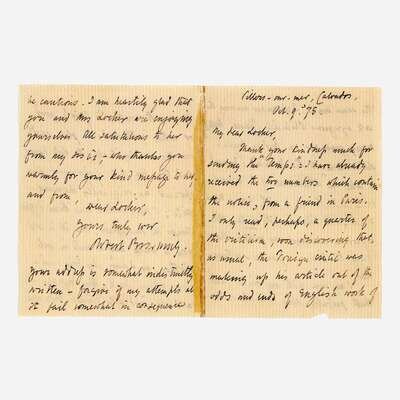 be cautious. I am heartily glad that
you and Mrs Locker are enjoying
yourselves. All salutations to her
from my sister - who thanks you
warmly for your kind message to her,
and from,
Dear Locker,
Yours truly ever
Robert Browning.
Your address is somewhat indistinctly
written - forgive if my attempts at
it fail somewhat in consequence
Villers-sur-mer, Calvados,
Oct. 9. '75
My dear Locker,
Thank you kindly much for
sending the "Temps": I have already
received the two numbers which contain
the notices, from a friend in Paris.
I only read, perhaps, a quarter of
the criticism, soon discovering that,
as usual, the Foreign critic was
making up his article out of the
odds and ends of English work of